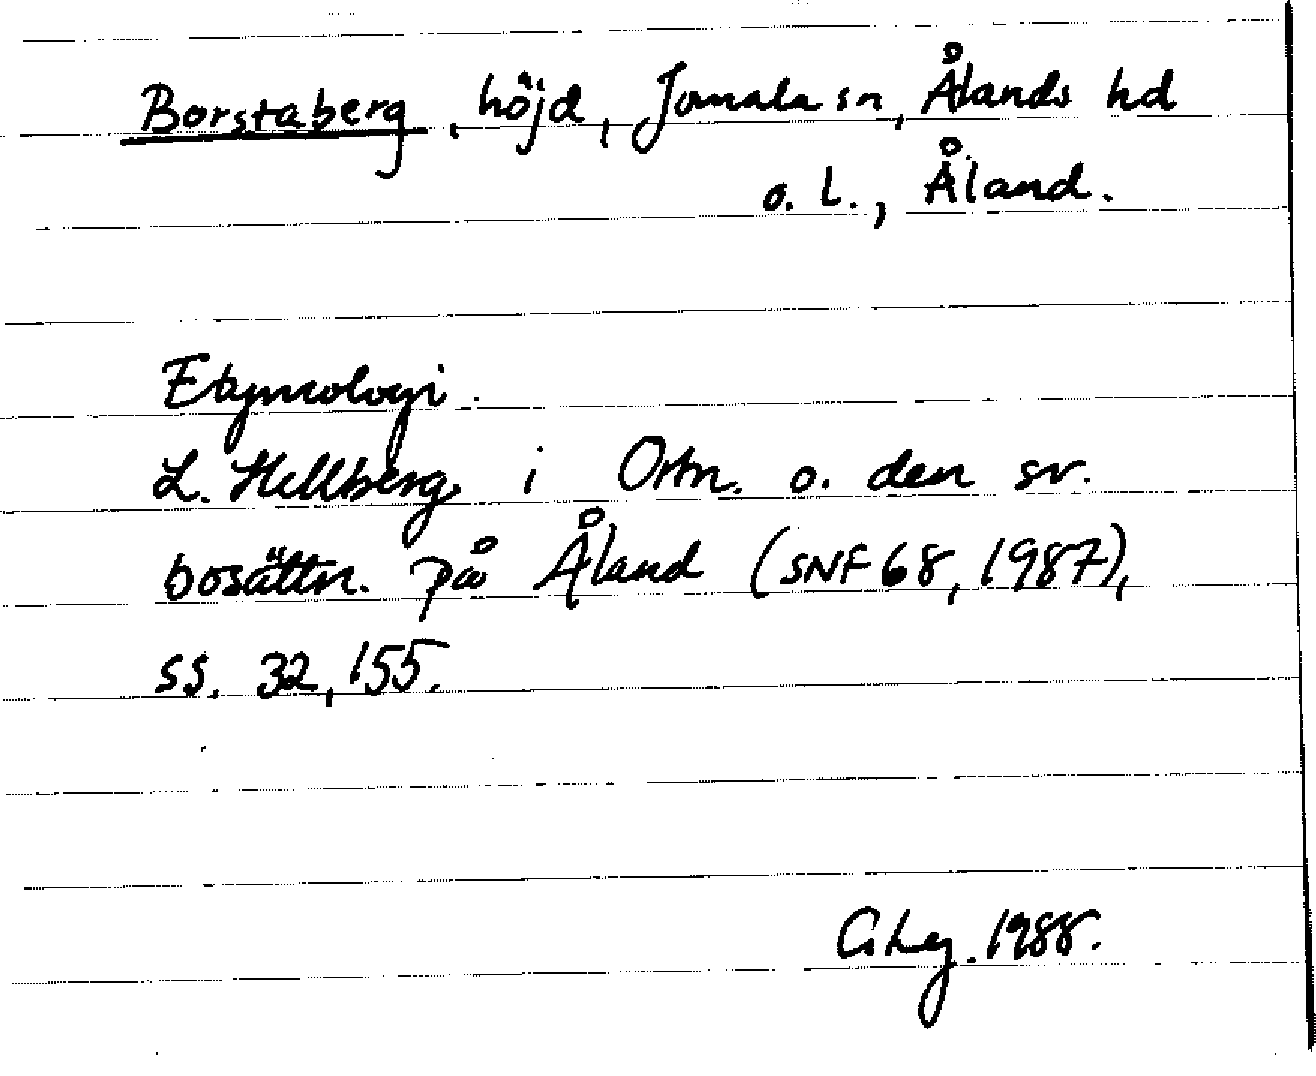 Borstaberg, höjd, Jomala sn, Ålands hd
o. l., Åland.
Etymologi.
L. Hellberg i Ortn. o. den sv.
bosättn. på Åland (SNF 68, 1987),
ss. 32, 155.
1988.